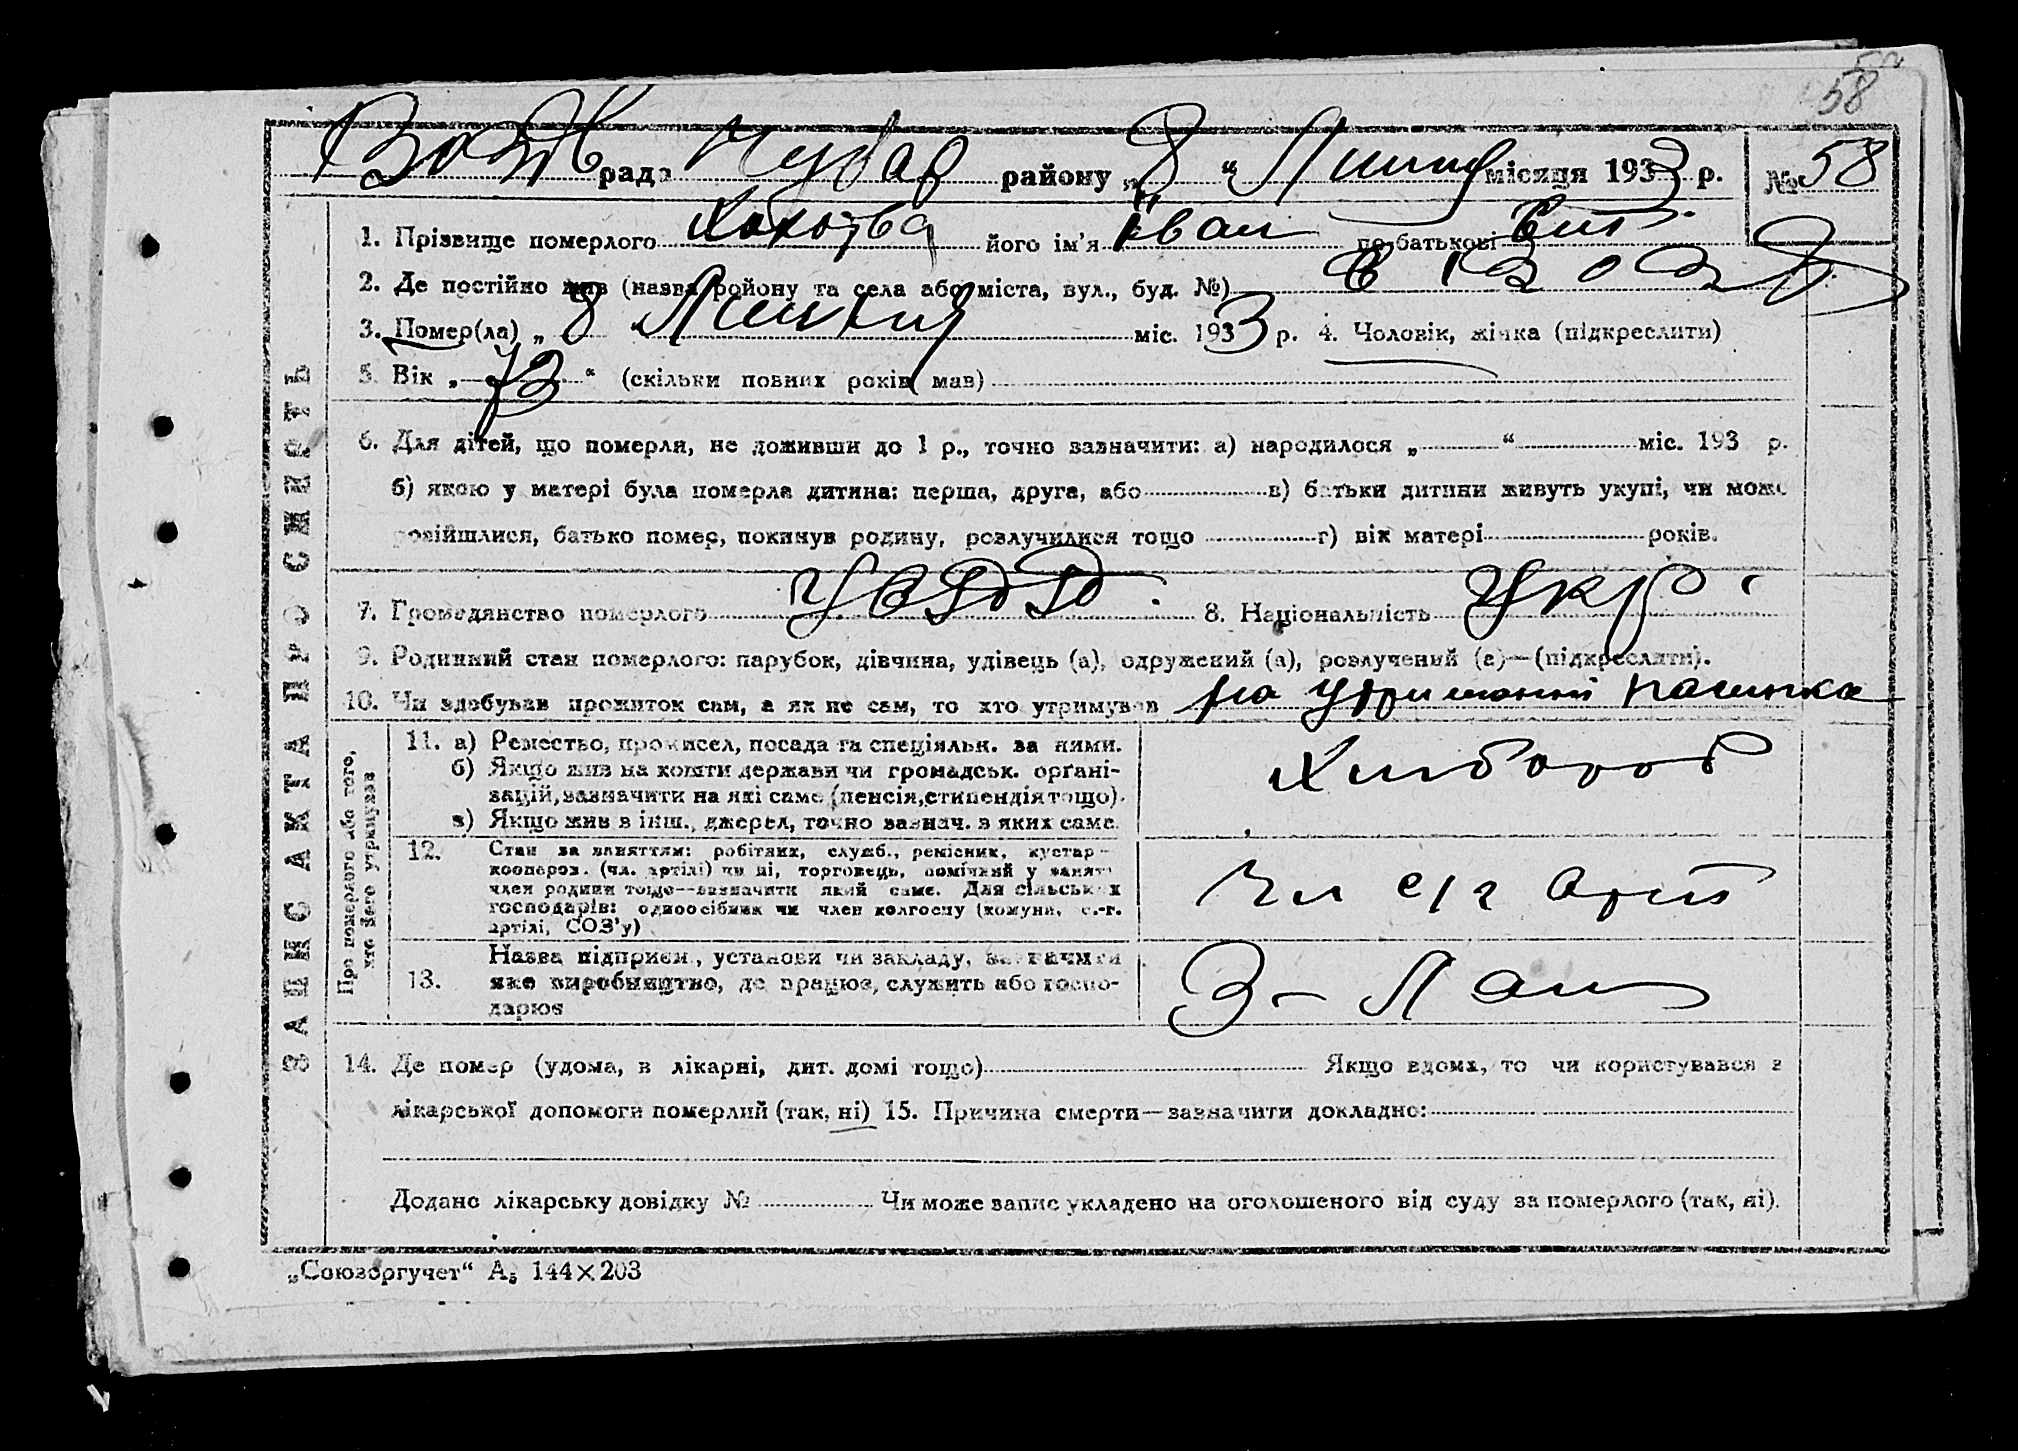 58
рада району „8“ Липня місяця 1933 р. № 58
1. Прізвище померлого його ім'я Іван по батькові
2. Де постійно жив (назва району та села або міста, вул., буд. №)
3. Помер(ла) „8 Липня міс. 1933 р. 4. Чоловік, жінка (підкреслити)
5. Вік „73“ (скільки повних років мав)
6. Для дітей, що померли, не доживши до 1 р., точно зазначити: а) народилося „ “ міс. 193 р.
б) якою у матері була померла дитина: перша, друга, або в) батьки дитини живуть укупі, чи може
розійшлися, батько помер, покинув родину, розлучилися тощо г) вік матері років.
7. Громадянство померлого УСРР. 8. Національність Укр.
9. Родинний стан померлого: парубок, дівчина, удівець (а), одружений (а), розлучений (а)—(підкреслити).
10. Чи здобував прожиток сам, а як не сам, то хто утримував на утриманні пасинка
ЗАПИС АКТА ПРО СМЕРТЬ
Про померлого або того,
хто його утримував
11. а) Ремество, промисел, посада та спеціяльн. за ними.
б) Якщо жив на кошти держави чи громадськ. організацій, зазначити на які саме (пенсія, стипендія тощо).
в) Якщо жив в інш., джерел, точно зазнач. з яких саме.
Хлібороб
12. Стан за заняттям: робітник, служб., ремісник, кустар—
кооперов. (чл. артілі) чи ні, торговець, помічний у занят.
член родини тощо—зазначити який саме. Для сільських
господарів: одноосібник чи член колгоспу (комуни, с.-г.
артілі, СОЗ'у)
Чл с/г Арт
13. Назва підприєм., установи чи закладу, зазначити
яке виробництво, де працює, служить або господарює
14. Де помер (удома, в лікарні, дит. домі тощо) Якщо вдома, то чи користувався з
лікарської допомоги померлий (так, ні) 15. Причина смерти—зазначити докладно:
Додано лікарську довідку № Чи може запис укладено на оголошеного від суду за померлого (так, ні).
„Союзоргучет“ А₅ 144×203